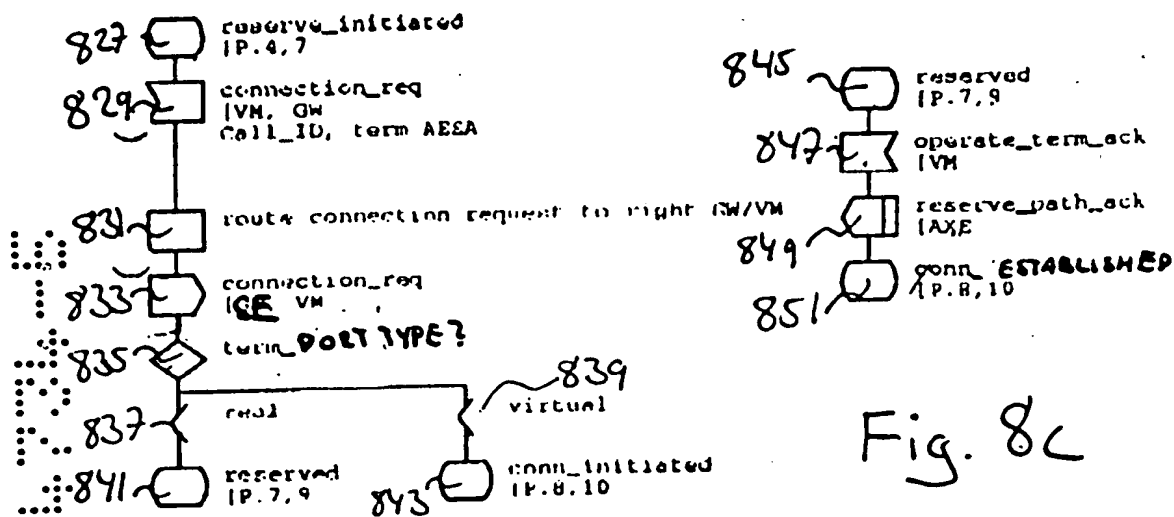 827 reserve_initiated
|P.4,7
829 connection_req
|VM, GW
Call_ID, term AESA
831 route connection request to right GW/VM
833 connection_req
|CE VM
835 term_PORT TYPE?
837 real
839 virtual
841 reserved
|P.7,9
843 conn_initiated
|P.8,10
845 reserved
|P.7,9
847 operate_term_ack
|VM
849 reserve_path_ack
|AXE
851 conn_ESTABLISHED
|P.8,10
Fig. 8c